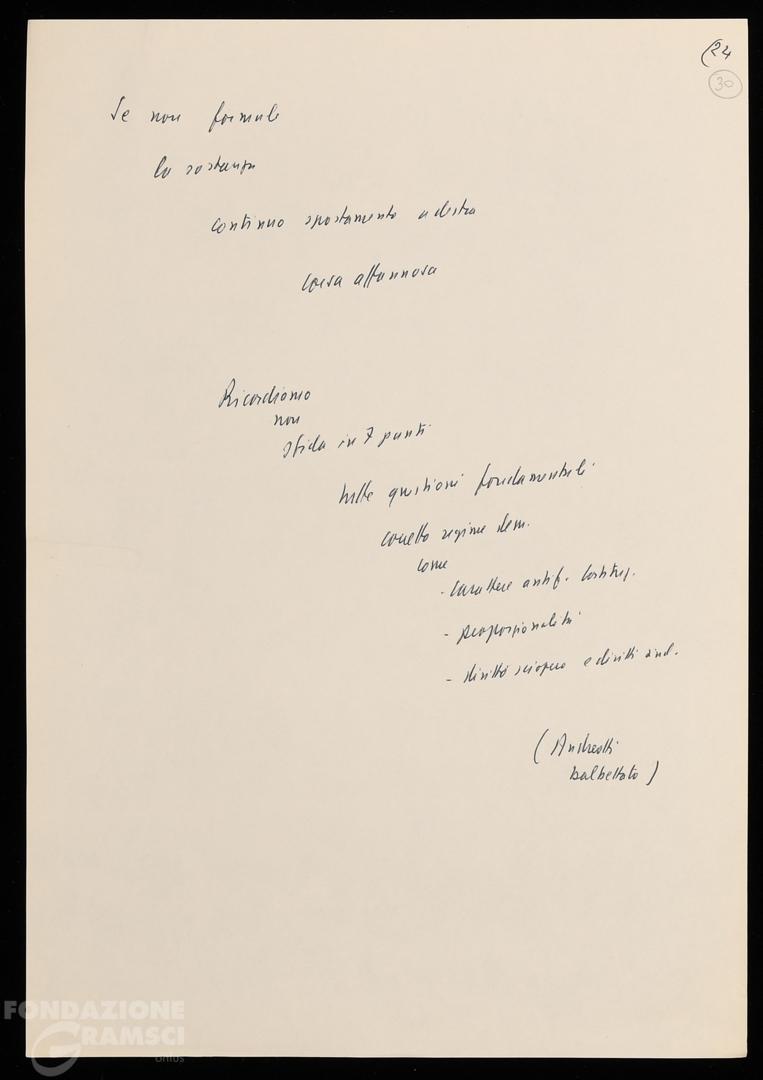 (24
30
Se non formule
la sostanza
continuo spostamento a destra
corsa affannosa
Ricordiamo
non
sfida in 7 punti
tutte questioni fondamentali
corretto regime dem.
come
- carattere antif. Costituz.
- proporzionalità
- diritto sciopero e diritti sind.
(Andreotti
balbettato)
FONDAZIONE
GRAMSCI
onlus